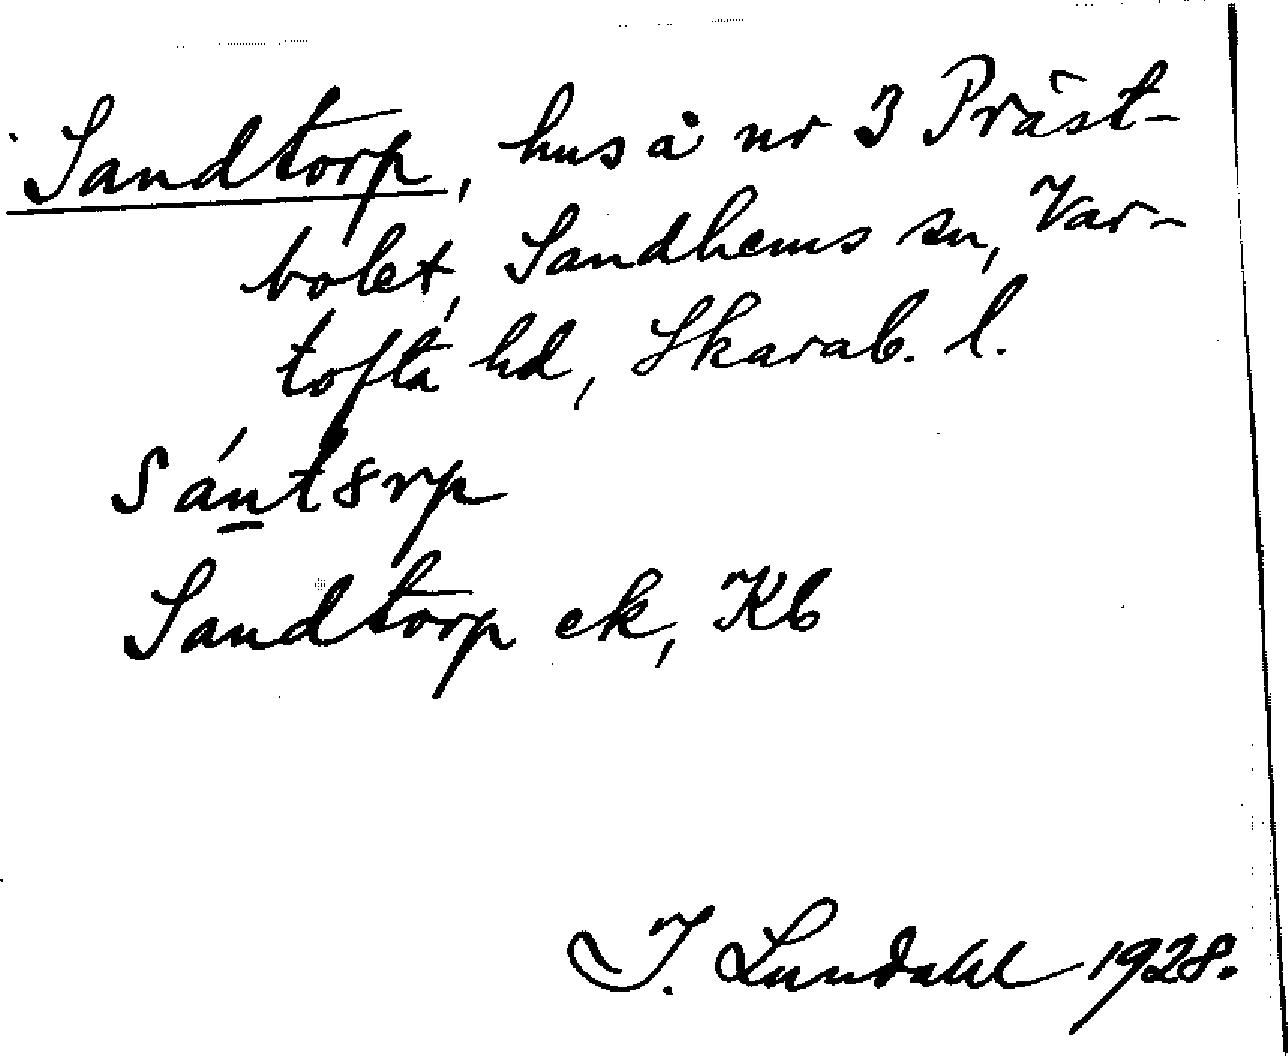 Sandtorp, hus å nr 3 Präst-
bolet, Sandhems sn, Var-
tofta hd, Skarab. l.
sántȣrp
Sandtorp ek, Kb
I. Lundahl 1928.